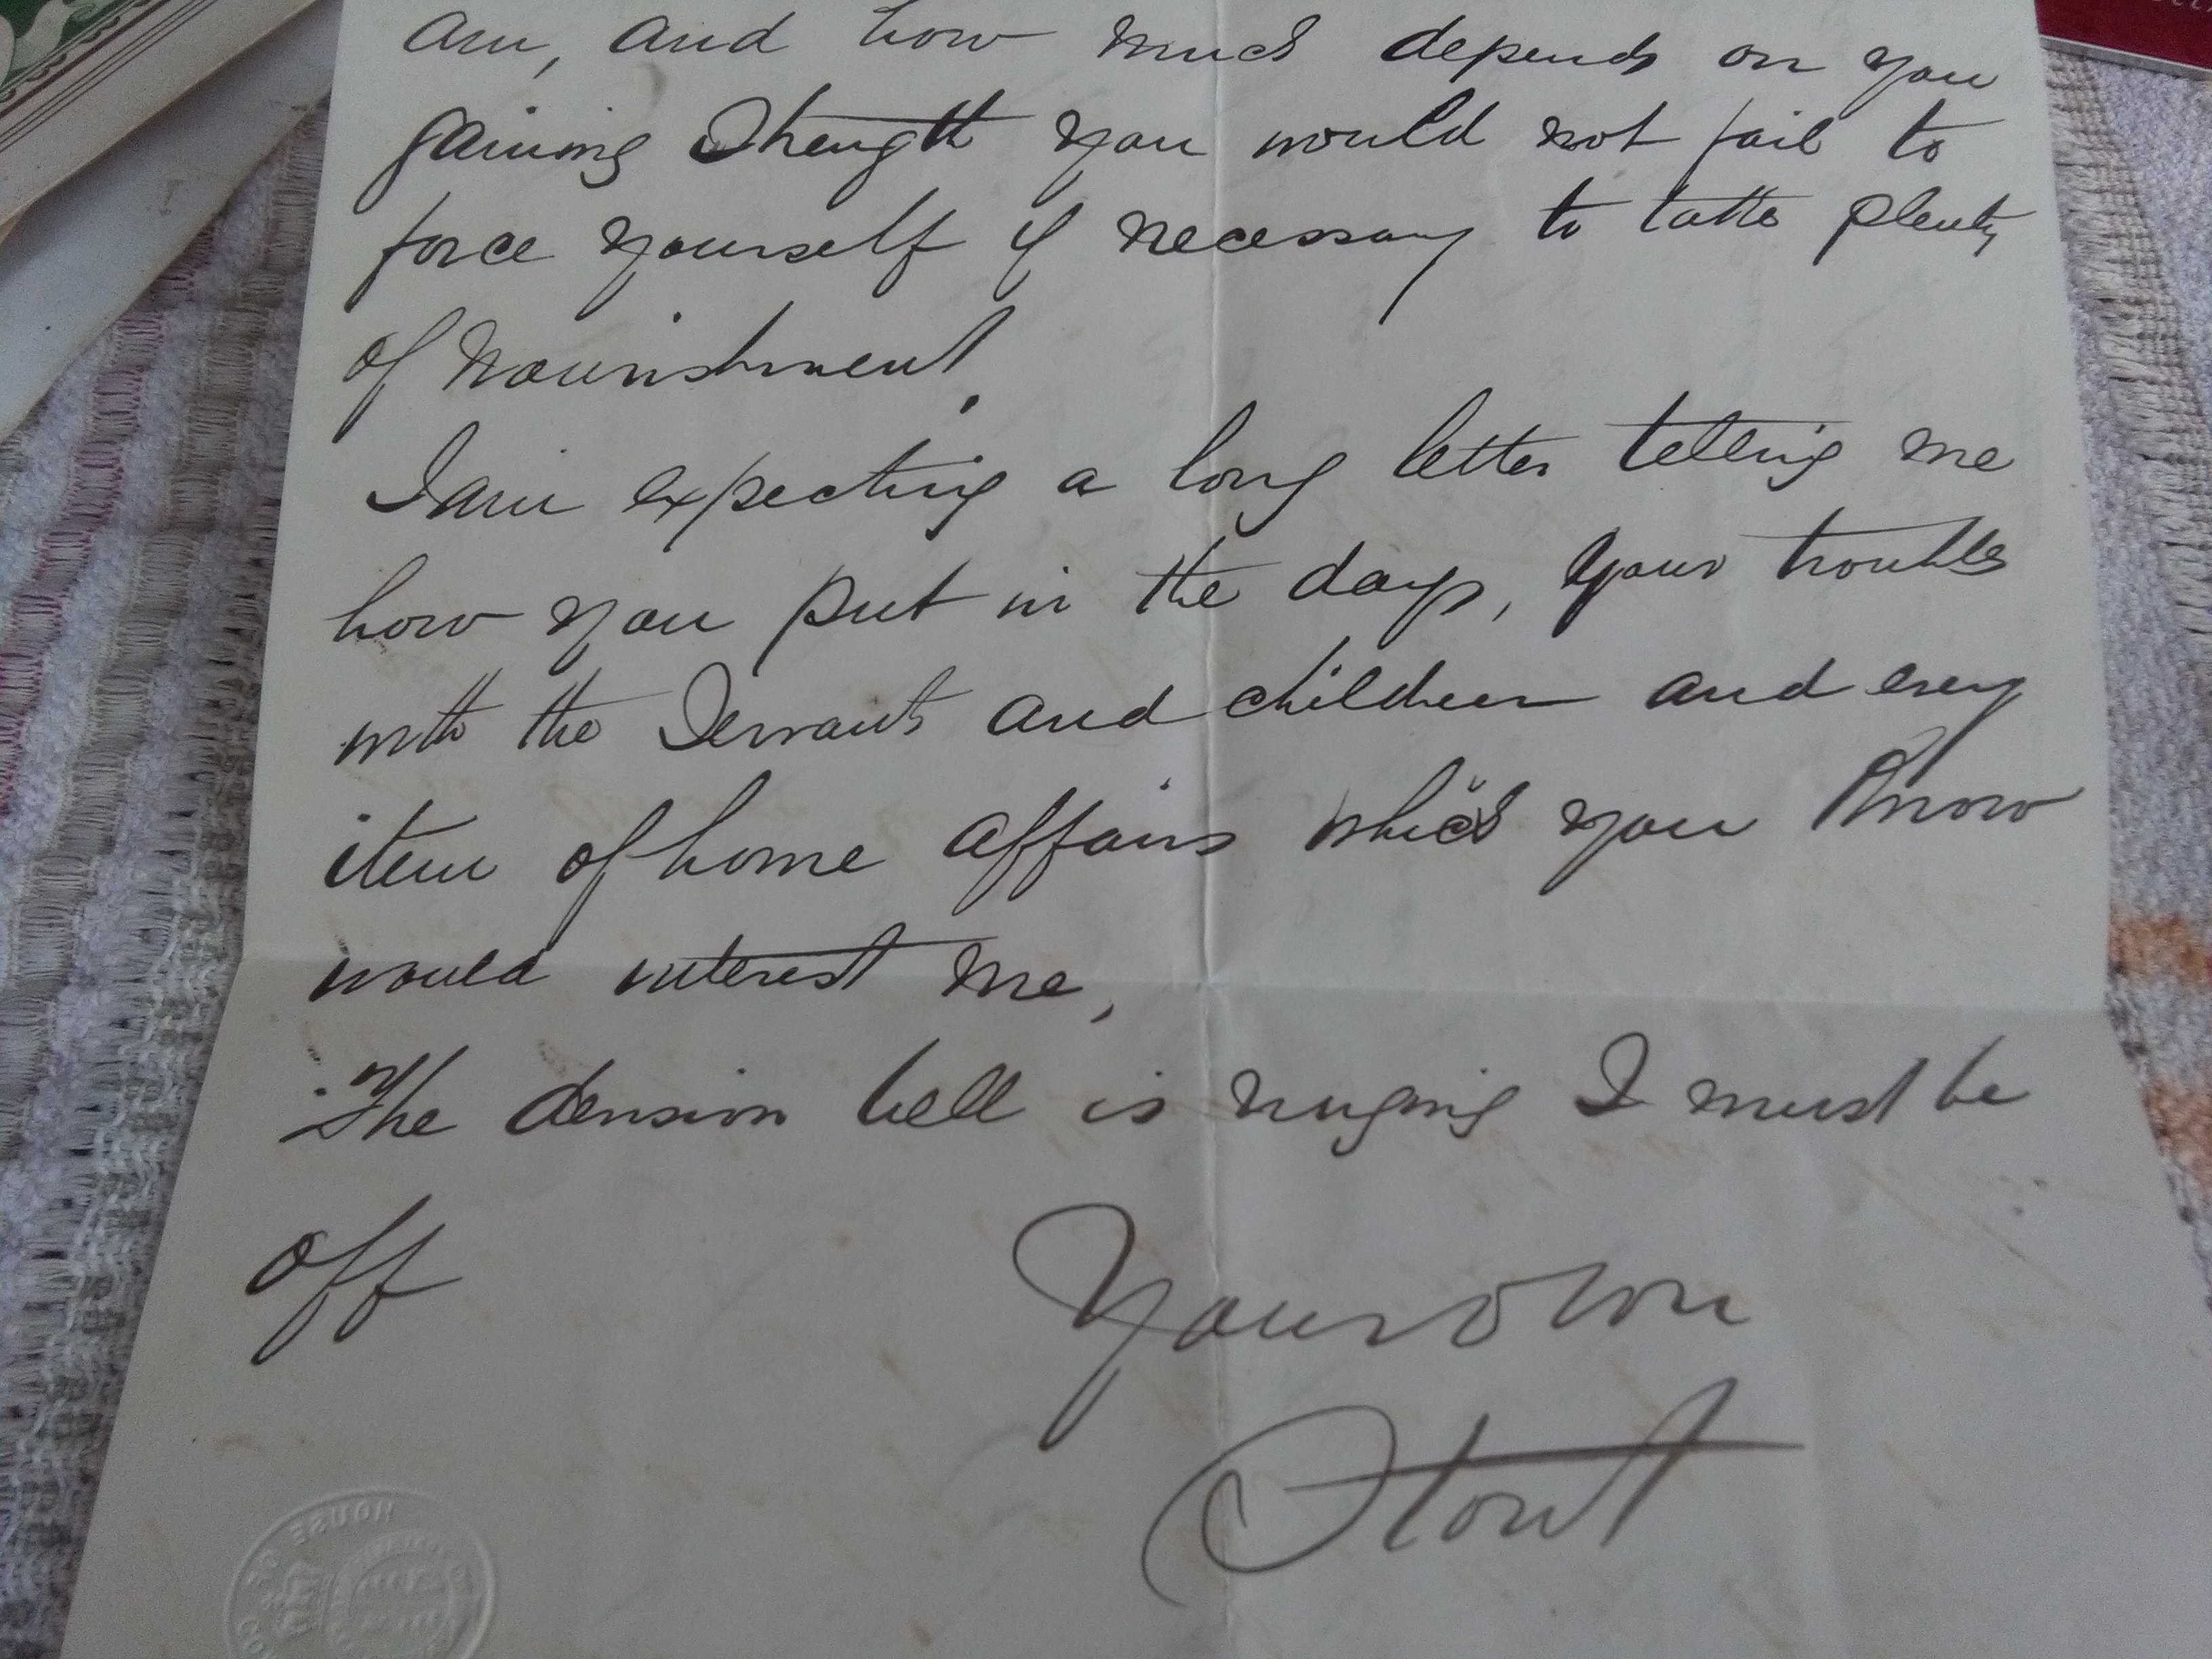 am, and how much depends on you
gaining Strength you would not fail to
force yourself if necessary to take plenty
of nourishment.
I am expecting a long letter telling me
how you put in the days, your troubles
with the Servants and children and every
item of home affairs which you know
would interest me,
The devision bell is ringing I must be
off
Your own
Stout
HOUSE OF